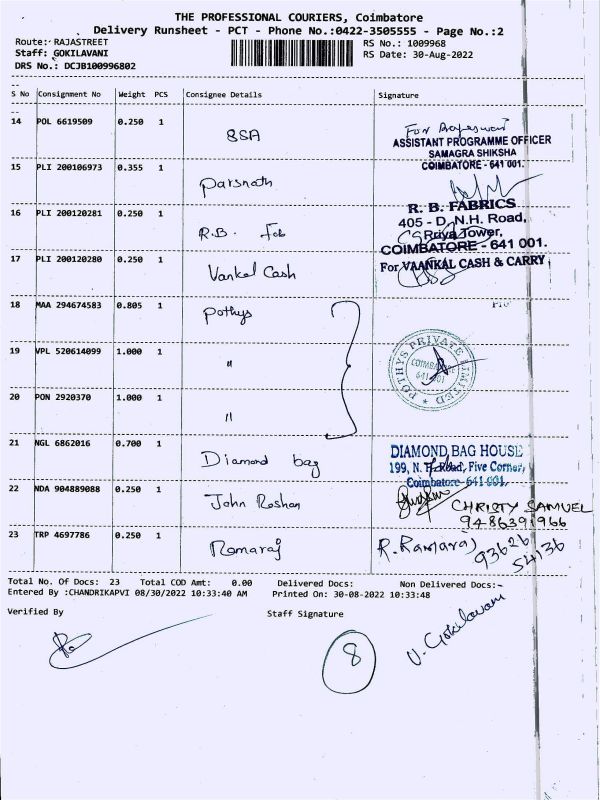 THE PROFESSIONAL COURIERS, Coimbatore
Delivery Runsheet - PCT - Phone No.:0422-3505555 - Page No.:2
Route:- RAJASTREET
RS No.: 1009968
Staff: GOKILAVANI
RS Date: 30-Aug-2022
DRS No.: DCJB100996802
S No Consignment No Weight PCS Consignee Details Signature
14 POL 6619509 0.250 1 SSA
ASSISTANT PROGRAMME OFFICER
SAMAGRA SHIKSHA
COIMBATORE - 641 001.
15 PLI 200106973 0.355 1 Parsnath
16 PLI 200120281 0.250 1 R.B. Fab
R. B. FABRICS
405 - D, N.H. Road,
Tower,
COIMBATORE - 641 001.
17 PLI 200120280 0.250 1 Vankal Cash
For VAANKAL CASH & CARRY
18 MAA 294674583 0.805 1 Pothys
19 VPL 520614099 1.000 1 "
POTHYS PRIVATE LIMITED
641 001
20 PON 2920370 1.000 1 "
21 NGL 6862016 0.700 1 Diamond bag
DIAMOND BAG HOUSE
199, N. Road, Five Corner,
Coimbatore-641 001.
22 NDA 904889088 0.250 1 John Roshan
CHRISTY SAMUEL
9486391966
23 TRP 4697786 0.250 1 Ramaraj
R. Ramaraj
93626
54136
Total No. Of Docs: 23 Total COD Amt: 0.00 Delivered Docs: Non Delivered Docs:-
Entered By :CHANDRIKAPVI 08/30/2022 10:33:40 AM Printed On: 30-08-2022 10:33:48
Verified By Staff Signature
8
V. Gokilavani